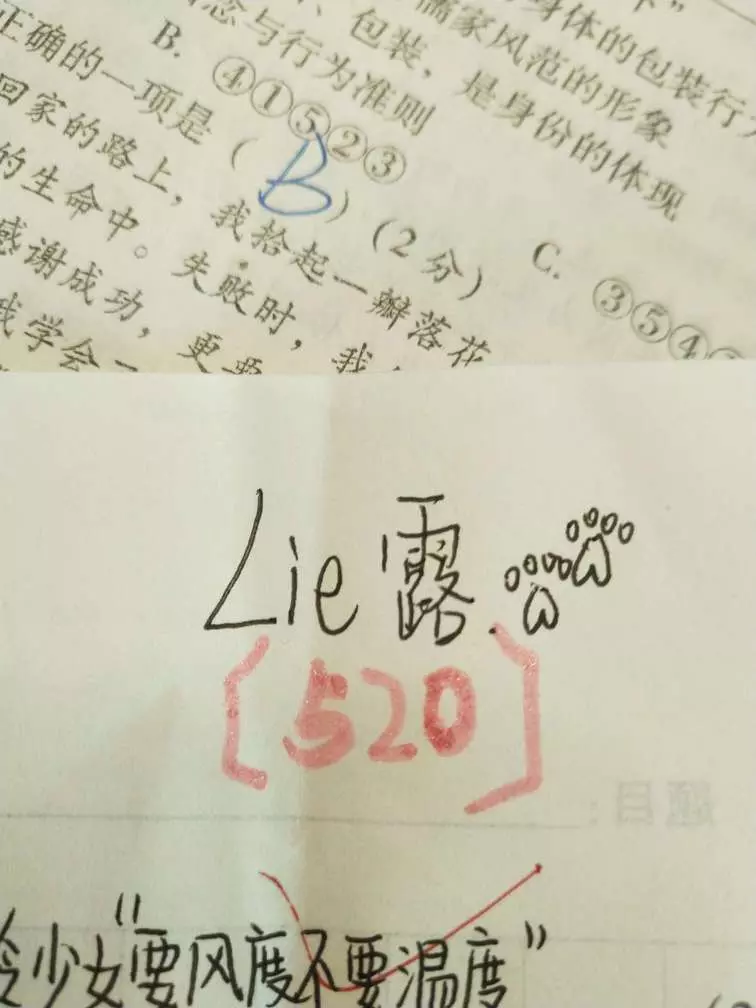 身体的包装行
儒家风范的形象
、包装，是身份的体现
念与行为准则
B. ④①⑤②③ C. ③⑤④
正确的一项是（B）（2分）
回家的路上，我拾起一瓣落花
的生命中。失败时，我
感谢成功，更要
我学会一
Lie露.
[520]
题目：
少女“要风度不要温度”